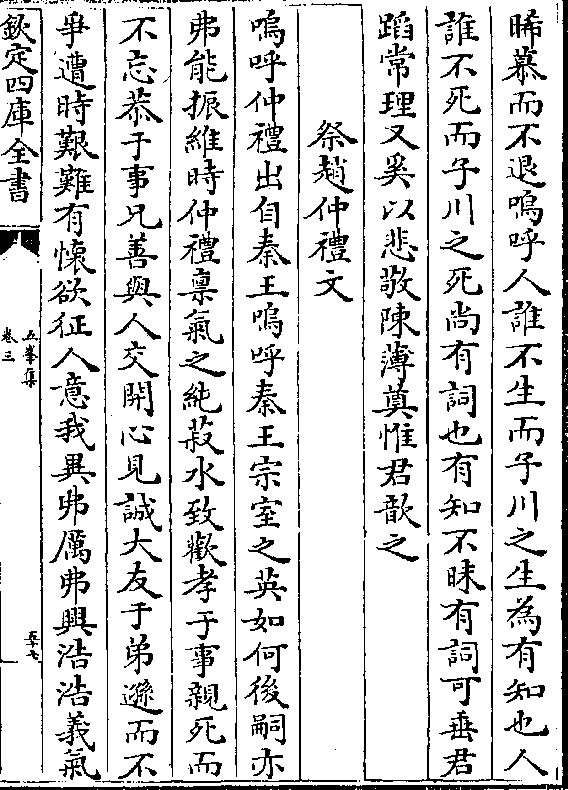 晞慕而不退嗚呼人誰不生而子川之生為有知也人
誰不死而子川之死尚有詞也有知不昧有詞可垂君
蹈常理又奚以悲敬陳薄奠惟君歆之
祭趙仲禮文
嗚呼仲禮出自秦王嗚呼秦王宗室之英如何後嗣亦
弗能振維時仲禮禀氣之純菽水致歡孝于事親死而
不忘恭于事兄善與人交開心見誠大友于弟遜而不
爭遭時艱難有懷欲征人意我異弗厲弗興浩浩義氣
欽定四庫全書
五峯集
卷三
五十七